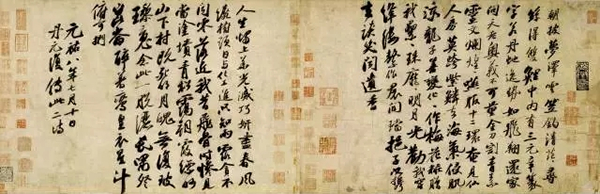 朝披夢澤雲笠釣青茫茫尋
絲得雙鯉中有三元章篆
字若丹蛇逸勢如飛翔還家
問天老奧義不可量金刀割青素
靈文爛煌煌嚥服十二環奄見仙
人房暮跨紫鱗去海氣侵肌
涼龍子善變化化作梅花妝贈
我纍纍珠靡靡明月光勸我穿
絳縷繫作裙間襠挹子以攜
去談笑聞遺香
人生燭上華光滅巧妍盡春風
繞樹頭日與化工進只知雨露貪不
聞零落近我昔飛骨時慘見
當塗墳青松靄朝霞縹緲
山下村既死明月魄無復玻
璃魂念此一脫灑長嘯登
崑崙醉着鸞皇衣星斗
俯可捫
元祐八年七月十日
丹元復傳此二詩